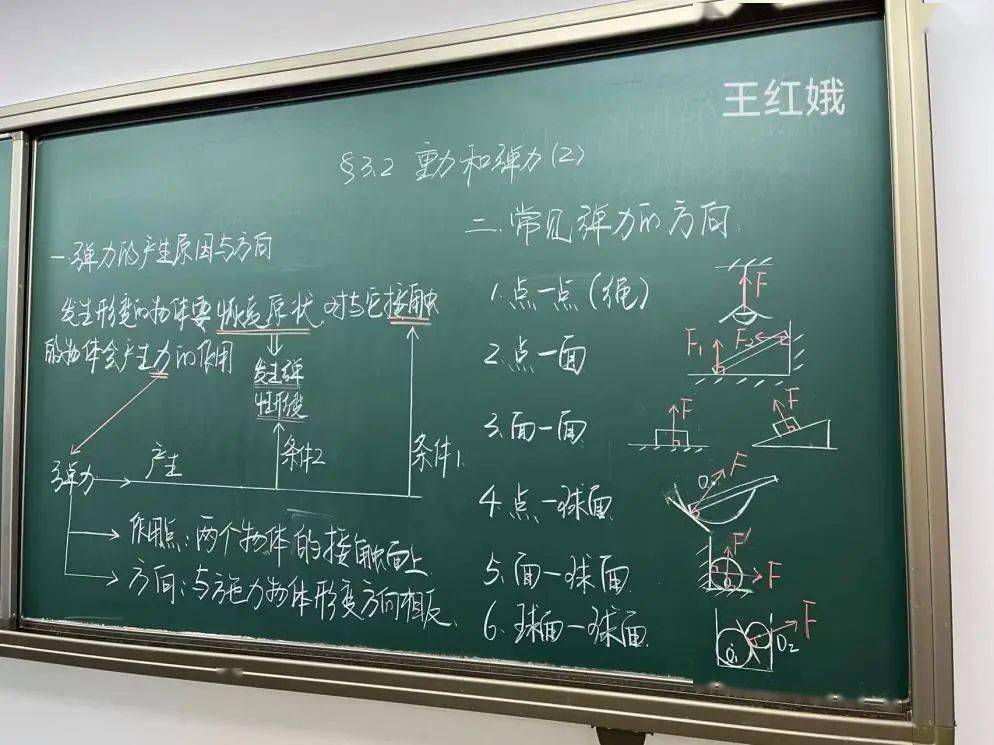 王红娥
§3.2 重力和弹力(2)
一.弹力的产生原因与方向
发生形变的物体要恢复原状,对与它接触
的物体会产生力的作用
发生弹
性形变
条件2
条件1
弹力
产生
作用点:两个物体的接触面上
方向:与施力物体形变方向相反.
二.常见弹力的方向
1.点一点(绳)
F
2.点一面
F₁
F₂
3.面一面
F
F
4.点一球面
O
F
5.面一球面
F'
F
6.球面一球面
O₁
O₂
F